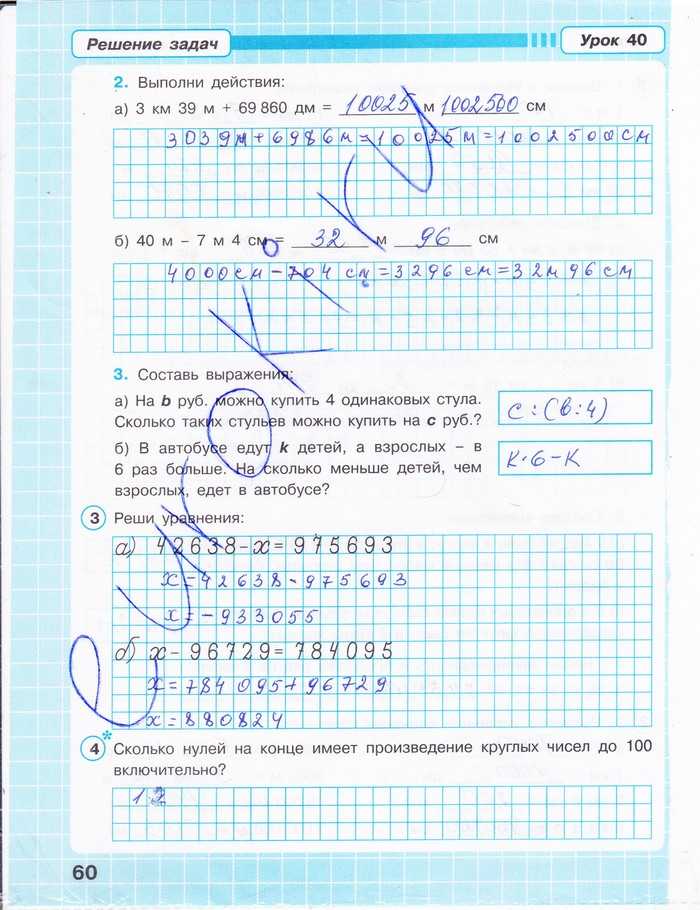 Решение задач
Урок 40
2. Выполни действия:
а) 3 км 39 м + 69 860 дм = 10025 м 1002500 см
3039м+6986м=10025м=1002500см
б) 40 м – 7 м 4 см = 32 м 96 см
4000см-704 см=3296см=32м96см
3. Составь выражения:
а) На b руб. можно купить 4 одинаковых стула.
Сколько таких стульев можно купить на с руб.?
с:(в:4)
б) В автобусе едут k детей, а взрослых – в
6 раз больше. На сколько меньше детей, чем
взрослых, едет в автобусе?
к·6-к
3 Реши уравнения:
а) 42638-х=975693
х=42638-975693
х=-933055
б) х-96729=784095
х=784095+96729
х=880824
4* Сколько нулей на конце имеет произведение круглых чисел до 100
включительно?
12
60